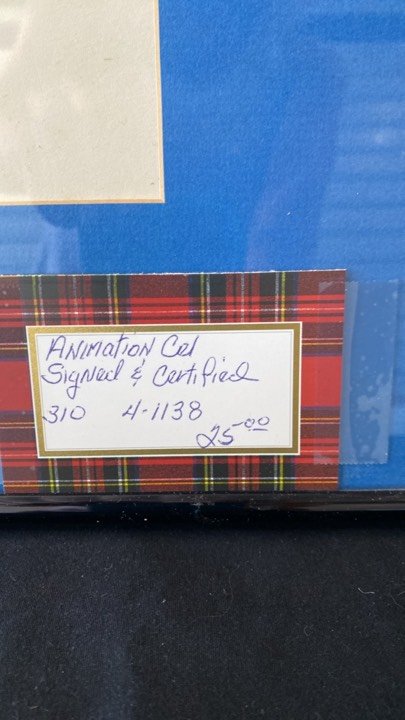 ANIMATION Cel
Signed & Certified
310 4-1138
25.00